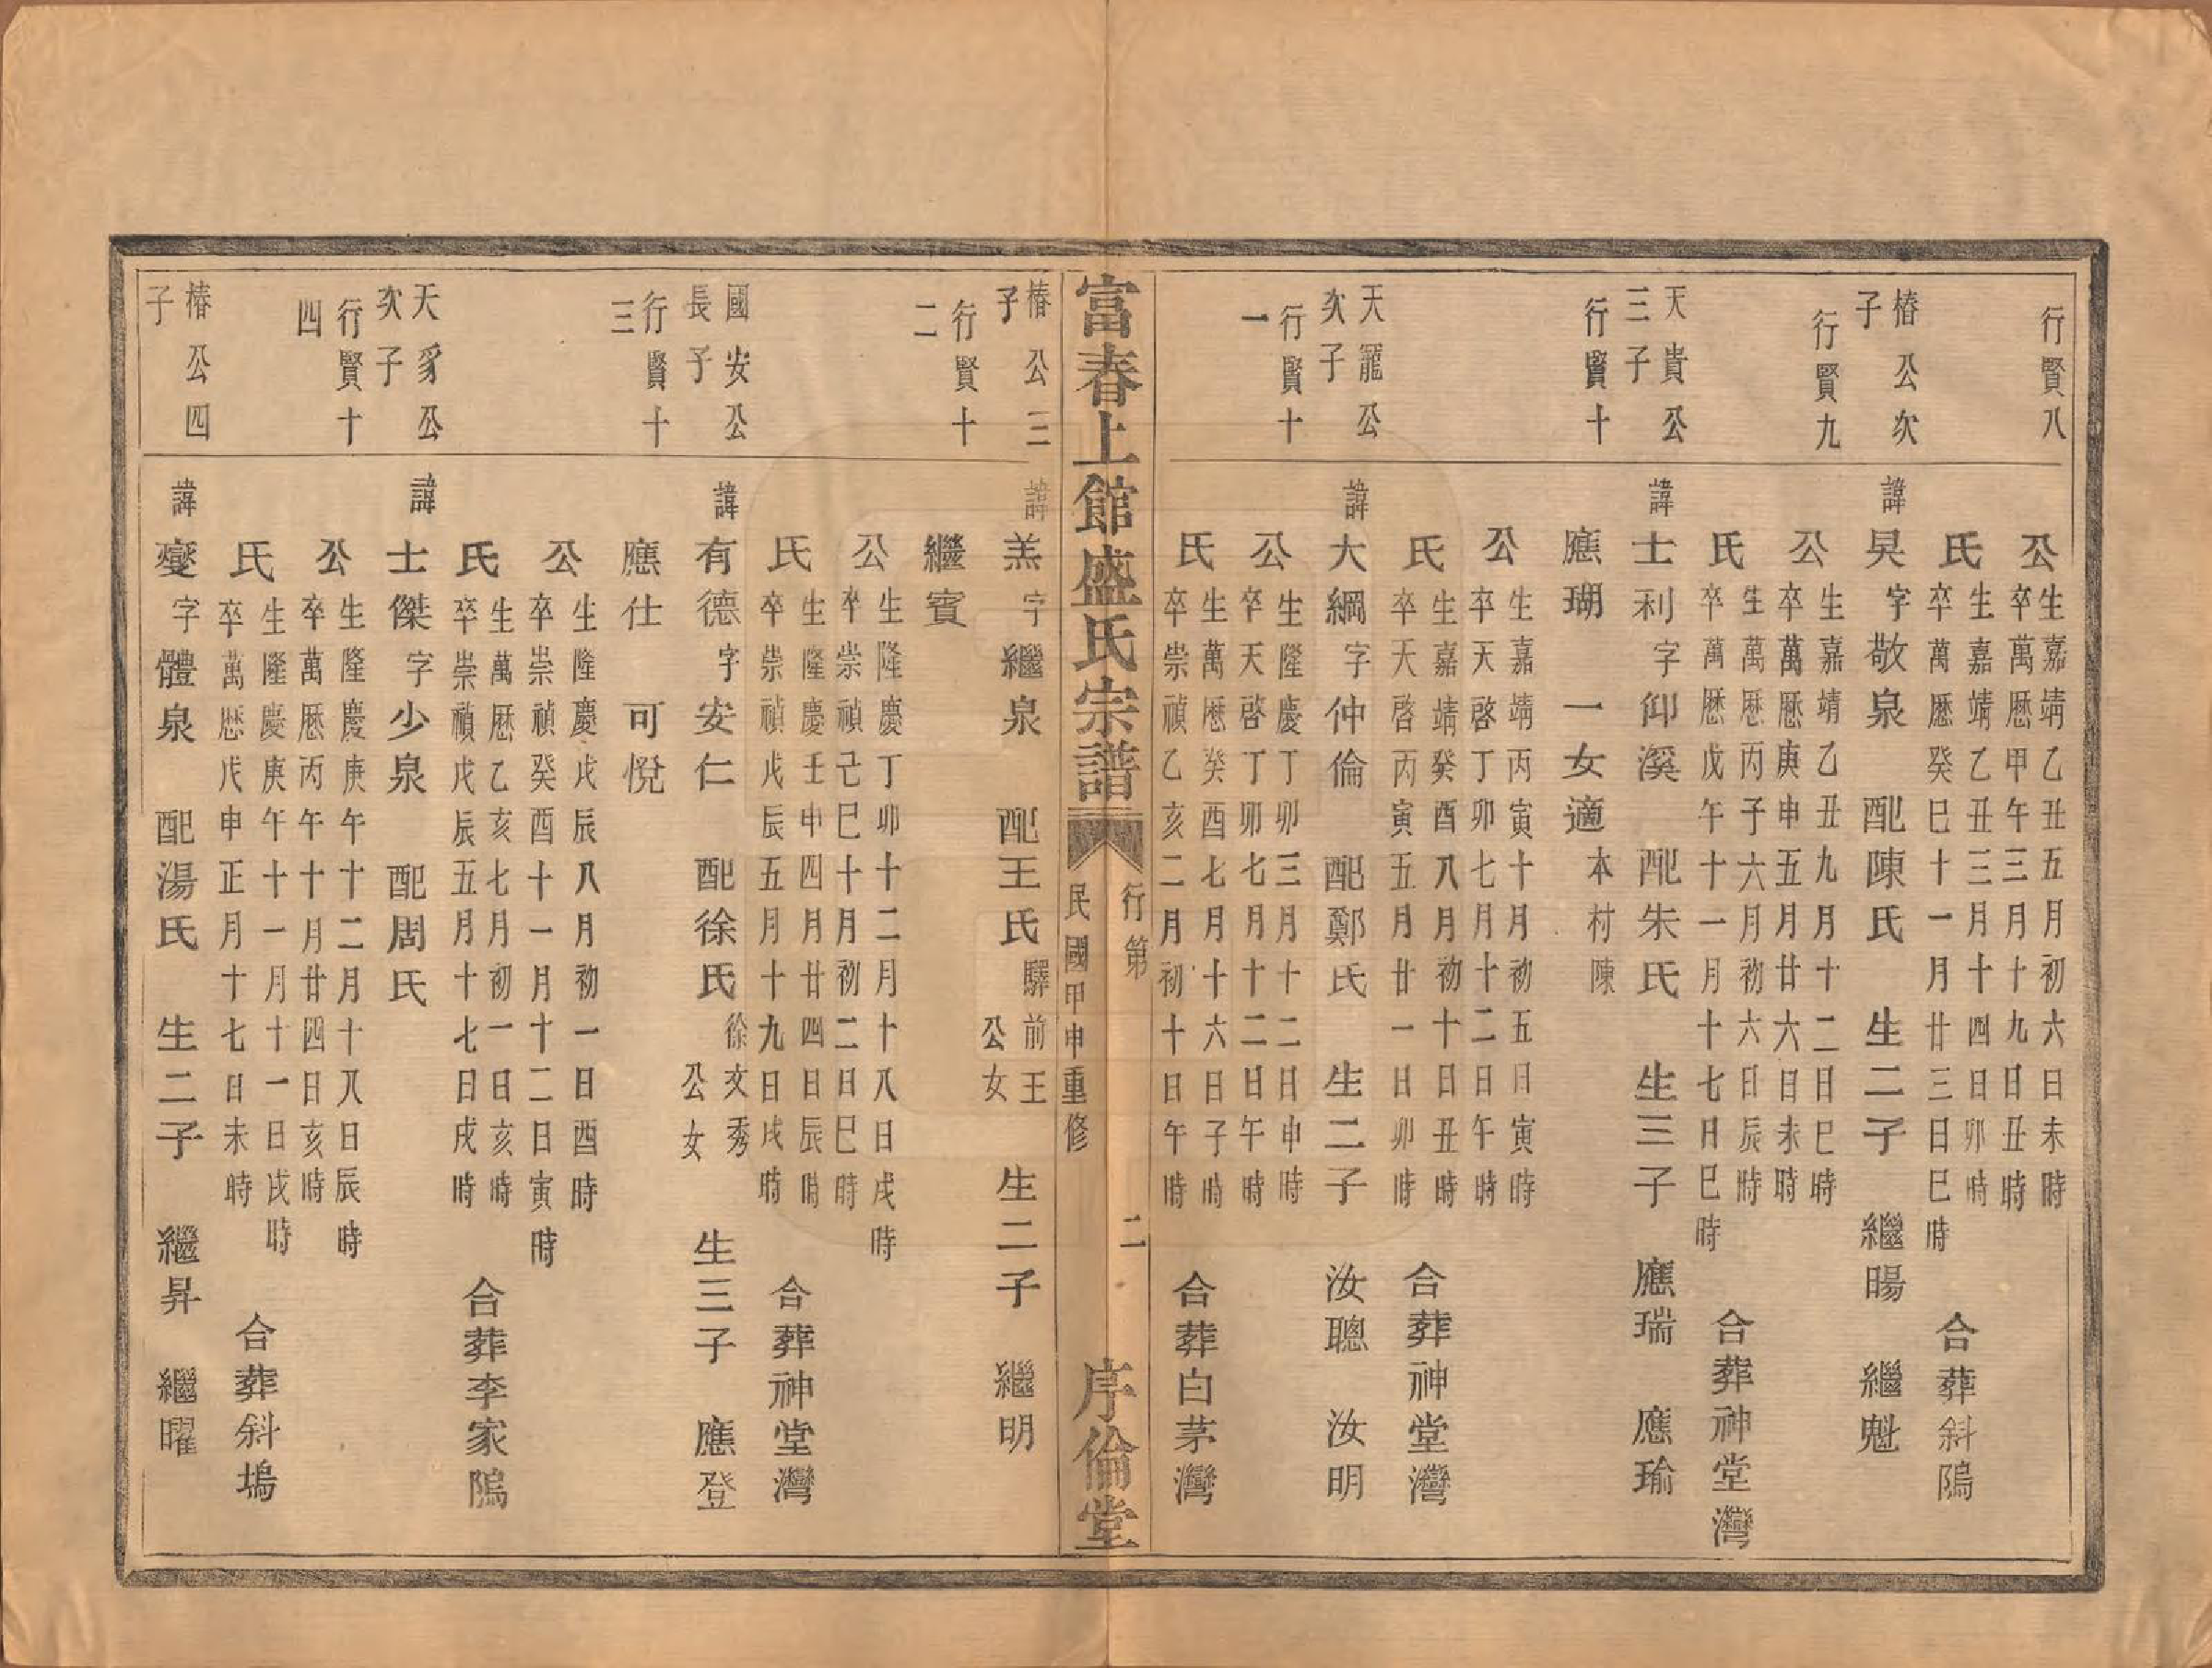 行賢八
公 生嘉靖乙丑五月初六日未時
卒萬厯甲午三月十九日丑時
氏 生嘉靖乙丑三月十四日卯時
卒萬厯癸巳十一月廿三日巳時 合葬斜隖
椿公次子
諱昊 字敬泉 配陳氏 生二子 繼暘 繼魁
行賢九
公 生嘉靖乙丑九月十二日巳時
卒萬厯庚申五月廿六日未時
氏 生萬厯丙子六月初六日辰時
卒萬厯戊午十一月十七日巳時 合葬神堂灣
天貴公三子
諱士利 字仰溪 配朱氏 生三子 應瑞 應瑜
應瑚 一女適本村陳
行賢十
公 生嘉靖丙寅十月初五日寅時
卒天啓丁卯七月十二日午時
氏 生嘉靖癸酉八月初十日丑時
卒天啓丙寅五月廿一日卯時 合葬神堂灣
天寵公次子
諱大綱 字仲倫 配鄭氏 生二子 汝聰 汝明
行賢十一
公 生隆慶丁卯三月十二日申時
卒天啓丁卯七月十二日午時
氏 生萬厯癸酉七月十六日子時
卒崇禎乙亥二月初十日午時 合葬白茅灣
富春上館盛氏宗譜
行第 二
民國甲申重修
序倫堂
椿公三子
諱羔 字繼泉 配王氏 驛前王公女 生二子 繼明
繼賓
行賢十二
公 生隆慶丁卯十二月十八日戌時
卒崇禎己巳十月初二日巳時
氏 生隆慶壬申四月廿四日辰時
卒崇禎戊辰五月十九日戌時 合葬神堂灣
國安公長子
諱有德 字安仁 配徐氏 徐文秀公女 生三子 應登
應仕 可悅
行賢十三
公 生隆慶戊辰八月初一日酉時
卒崇禎癸酉十一月十二日寅時
氏 生萬厯乙亥七月初一日亥時
卒崇禎戊辰五月十七日戌時 合葬李家隖
天豸公次子
諱士傑 字少泉 配周氏
行賢十四
公 生隆慶庚午十二月十八日辰時
卒萬厯丙午十月廿四日亥時
氏 生隆慶庚午十一月十一日戌時
卒萬厯戊申正月十七日未時 合葬斜塢
椿公四子
諱燮 字體泉 配湯氏 生二子 繼昇 繼曜